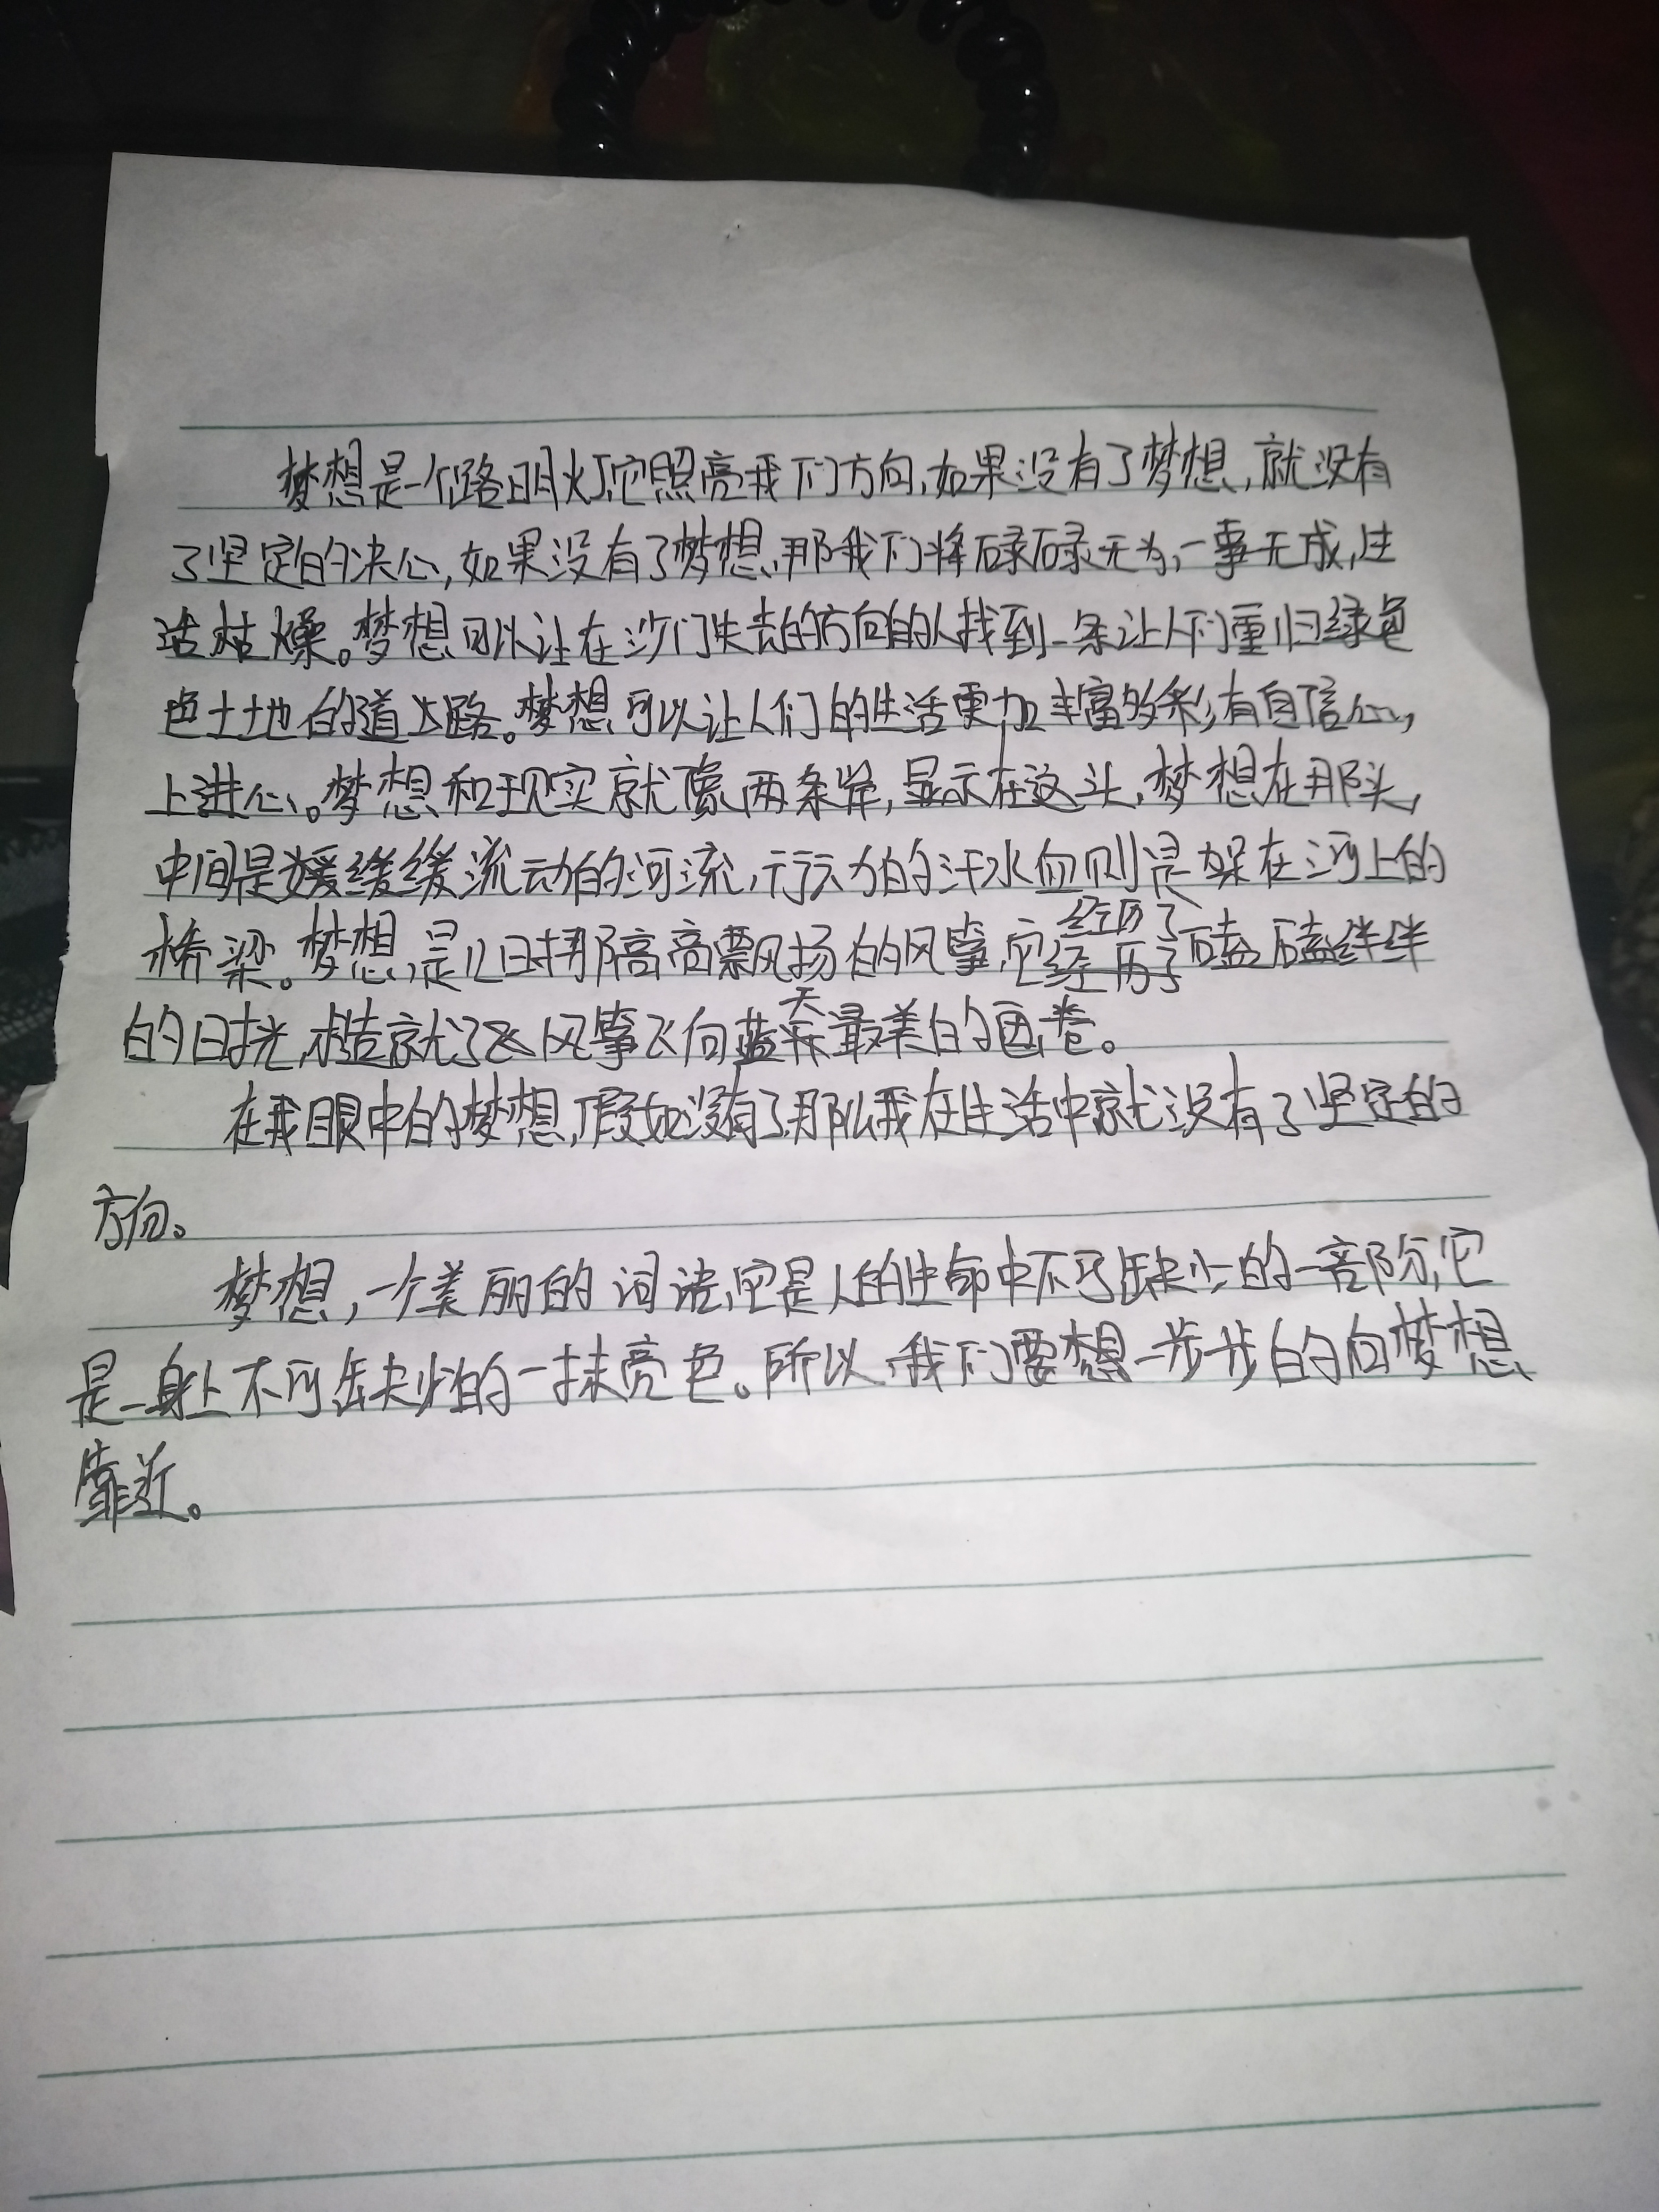 梦想是一个路明灯,它照亮我们方向,如果没有了梦想,就没有
了坚定的决心,如果没有了梦想,那我们将碌碌无为,一事无成,生
活枯燥。梦想可以让在沙门失去的方向的人找到一条让人们重归绿色
色土地的道上路。梦想可以让人们的生活更加丰富多彩,有自信心,
上进心。梦想和现实就像两条岸,显示在这头,梦想在那头,
中间是缓缓流动的河流,行动的汗水血则是架在河上的
桥梁。梦想,是儿时那高高飘扬的风筝,它经历了磕磕绊绊
的时光,才造就了飞风筝飞向蓝天最美的画卷。
在我眼中的梦想,假如没有了,那么我在生活中就没有了坚定的
方向。
梦想,一个美丽的词语,它是人的生命中不可缺少的一部分,它
是一身上不可缺少的一抹亮色。所以,我们要想一步步的向梦想
靠近。